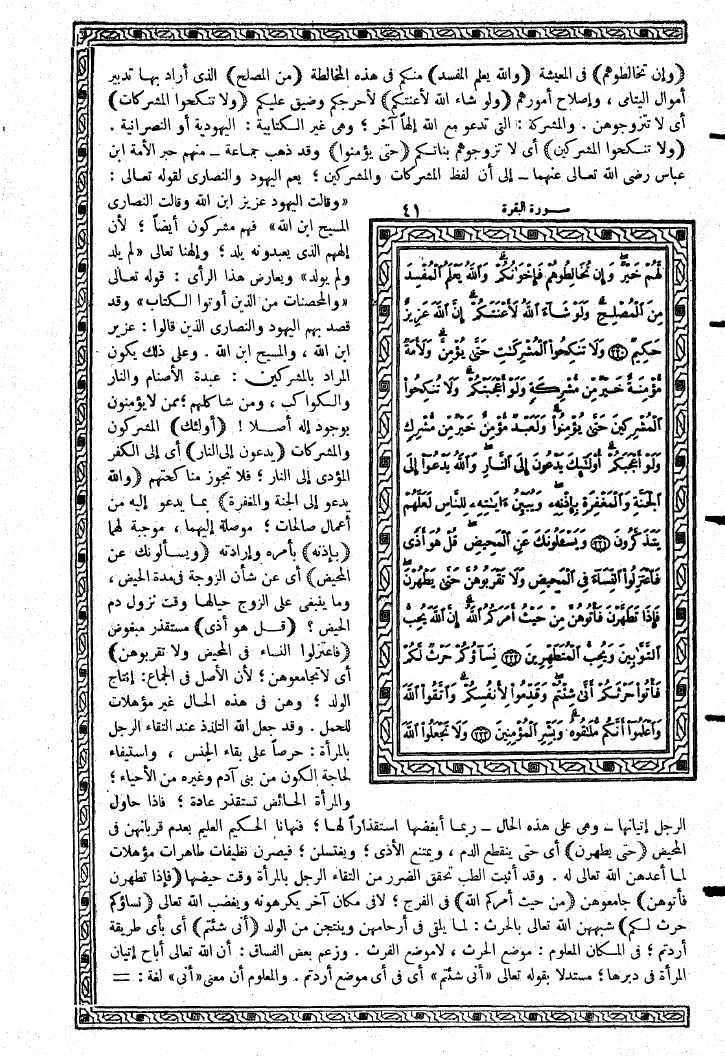 (وإن تخالطوهم) فى المعيشة (والله يعلم المفسد) منكم فى هذه المخالطة (من المصلح) الذى أراد بها تدبير
أموال اليتامى، وإصلاح أمورهم (ولو شاء الله لأعنتكم) لأحرجكم وضيق عليكم (ولا تنكحوا المشركات)
أى لا تتزوجوهن. والمشركة: التى تدعو مع الله إلهاً آخر؛ وهى غير الكتابية: اليهودية أو النصرانية.
(ولا تنكحوا المشركين) أى لا تزوجوهم بناتكم (حتى يؤمنوا) وقد ذهب جماعة ــ منهم حبر الأمة ابن
عباس رضى الله تعالى عنهما ــ إلى أن لفظ المشركات والمشركين؛ يعم اليهود والنصارى لقوله تعالى:
«وقالت اليهود عزير ابن الله وقالت النصارى
المسيح ابن الله» فهم مشركون أيضاً؛ لأن
إلههم الذى يعبدونه يلد؛ وإلهنا تعالى «لم يلد
ولم يولد» ويعارض هذا الرأى: قوله تعالى
«والمحصنات من الذين أوتوا الكتاب» وقد
قصد بهم اليهود والنصارى الذين قالوا: عزير
ابن الله، والمسيح ابن الله. وعلى ذلك يكون
المراد بالمشركين: عبدة الأصنام والنار
والكواكب، ومن شاكلهم؛ ممن لا يؤمنون
بوجود إله أصلا! (أولئك) المشركون
والمشركات (يدعون إلى النار) أى إلى الكفر
المؤدى إلى النار؛ فلا تجوز مناكحتهم (والله
يدعو إلى الجنة والمغفرة) بما يدعو إليه من
أعمال صالحات؛ موصلة إليهما، موجبة لهما
(بإذنه) بأمره وإرادته (ويسألونك عن
المحيض) أى عن شأن الزوجة فى مدة الحيض،
وما ينبغى على الزوج حيالها وقت نزول دم
الحيض؟ (قل هو أذى) مستقذر مبغوض
(فاعتزلوا النساء فى المحيض ولا تقربوهن)
أى لا تجامعوهن؛ لأن الأصل فى الجماع: إنتاج
الولد؛ وهن فى هذه الحال غير مؤهلات
للحمل. وقد جعل الله التلذذ عند التقاء الرجل
بالمرأة: حرصاً على بقاء الجنس، واستيفاء
لحاجة الكون من بنى آدم وغيره من الأحياء؛
والمرأة الحائض تستقذر عادة؛ فاذا حاول
سورة البقرة ٤١
لَّهُمْ خَيْرٌ وَإِن تُخَالِطُوهُمْ فَإِخْوَٰنُكُمْ وَاللَّهُ يَعْلَمُ الْمُفْسِدَ
مِنَ الْمُصْلِحِ وَلَوْ شَآءَ اللَّهُ لَأَعْنَتَكُمْ إِنَّ اللَّهَ عَزِيزٌ
حَكِيمٌ ﴿٢٢٠﴾ وَلَا تَنكِحُوا الْمُشْرِكَٰتِ حَتَّىٰ يُؤْمِنَّ وَلَأَمَةٌ
مُّؤْمِنَةٌ خَيْرٌ مِّن مُّشْرِكَةٍ وَلَوْ أَعْجَبَتْكُمْ وَلَا تُنكِحُوا
الْمُشْرِكِينَ حَتَّىٰ يُؤْمِنُوا وَلَعَبْدٌ مُّؤْمِنٌ خَيْرٌ مِّن مُّشْرِكٍ
وَلَوْ أَعْجَبَكُمْ أُولَٰٓئِكَ يَدْعُونَ إِلَى النَّارِ وَاللَّهُ يَدْعُوٓا إِلَى
الْجَنَّةِ وَالْمَغْفِرَةِ بِإِذْنِهِ وَيُبَيِّنُ ءَايَٰتِهِ لِلنَّاسِ لَعَلَّهُمْ
يَتَذَكَّرُونَ ﴿٢٢١﴾ وَيَسْـَٔلُونَكَ عَنِ الْمَحِيضِ قُلْ هُوَ أَذًى
فَاعْتَزِلُوا النِّسَآءَ فِى الْمَحِيضِ وَلَا تَقْرَبُوهُنَّ حَتَّىٰ يَطْهُرْنَ
فَإِذَا تَطَهَّرْنَ فَأْتُوهُنَّ مِنْ حَيْثُ أَمَرَكُمُ اللَّهُ إِنَّ اللَّهَ يُحِبُّ
التَّوَّٰبِينَ وَيُحِبُّ الْمُتَطَهِّرِينَ ﴿٢٢٢﴾ نِسَآؤُكُمْ حَرْثٌ لَّكُمْ
فَأْتُوا حَرْثَكُمْ أَنَّىٰ شِئْتُمْ وَقَدِّمُوا لِأَنفُسِكُمْ وَاتَّقُوا اللَّهَ
وَاعْلَمُوٓا أَنَّكُم مُّلَٰقُوهُ وَبَشِّرِ الْمُؤْمِنِينَ ﴿٢٢٣﴾ وَلَا تَجْعَلُوا اللَّهَ
الرجل إتيانها ــ وهى على هذه الحال ــ ربما أبغضها استقذاراً لها؛ فنهانا الحكيم العليم بعدم قربانهن فى
المحيض (حتى يطهرن) أى حتى ينقطع الدم، ويمتنع الأذى؛ ويغتسلن؛ فيصرن نظيفات طاهرات مؤهلات
لما أعدهن الله تعالى له. وقد أثبت الطب تحقق الضرر من التقاء الرجل بالمرأة وقت حيضها (فإذا تطهرن
فأتوهن) جامعوهن (من حيث أمركم الله) فى الفرج؛ لا فى مكان آخر يكرهونه ويغضب الله تعالى (نساؤكم
حرث لكم) شبههن الله تعالى بالحرث: لما يلقى فى أرحامهن وينتجن من الولد (أنى شئتم) أى بأى طريقة
أردتم؛ فى المكان المعلوم: موضع الحرث، لا موضع الفرث. وزعم بعض الفساق: أن الله تعالى أباح إتيان
المرأة فى دبرها؛ مستدلا بقوله تعالى «أنى شئتم» أى فى أى موضع أردتم. والمعلوم أن معنى «أنى» لغة: =